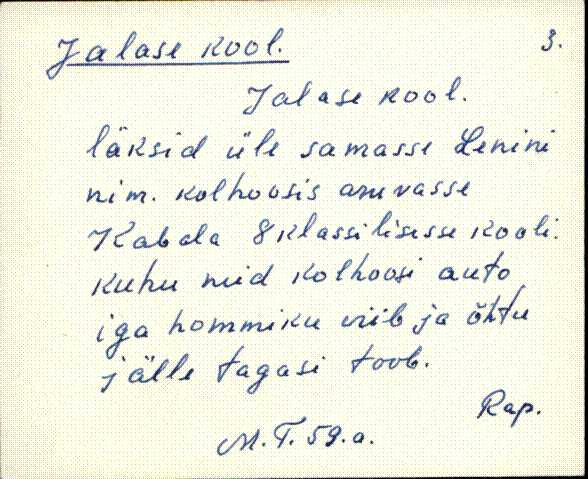 Jalase kool. 3.
Jalase kool.
läksid üle samasse Lenini
nim. kolhoosis asuvasse
Kabala 8 klassilisesse kooli.
kuhu neid kolhoosi auto
iga hommiku viib ja õhtu
jälle tagasi toob.
Rap.
M. T. 59. a.